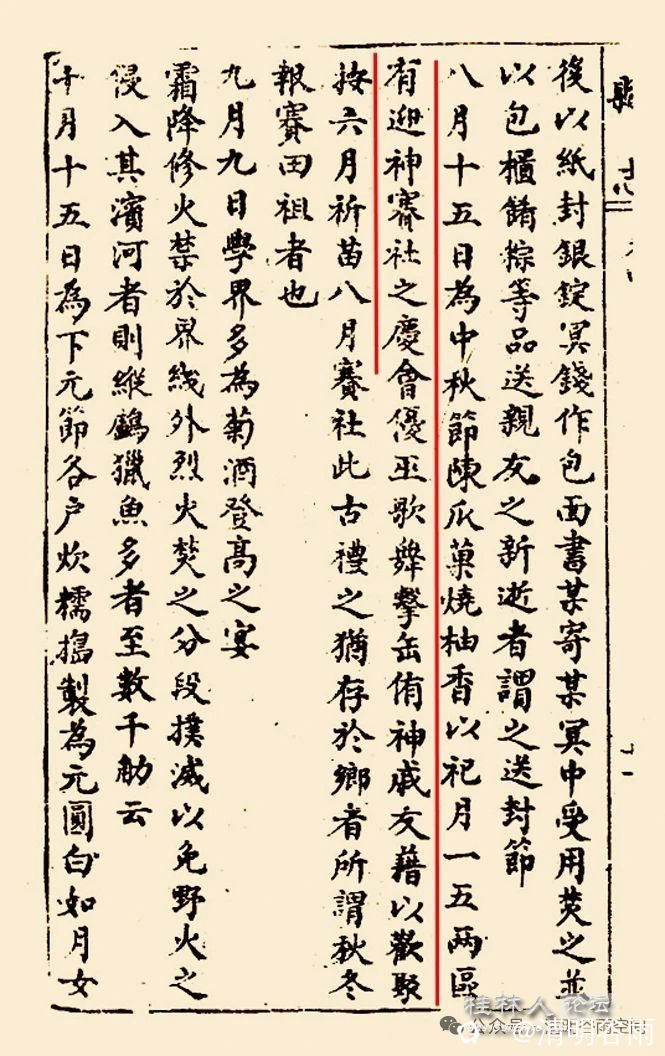 縣
後以紙封銀錠冥錢作包面書某寄某冥中受用焚之並
以包櫃餚粽等品送親友之新逝者謂之送封節
八月十五日為中秋節陳瓜菓燒柚香以祀月一五两區
有迎神賽社之慶會優巫歌舞擊缶侑神戚友藉以歡聚
按六月祈苗八月賽社此古禮之猶存於鄉者所謂秋冬
報賽田祖者也
九月九日學界多為菊酒登高之宴
霜降修火禁於界綫外烈火焚之分段撲滅以免野火之
侵入其濱河者則縱鸕獵魚多者至數千觔云
十月十五日為下元節各戶炊糯搗製為元圓白如月女
桂林人论坛
公众号
@清明谷雨